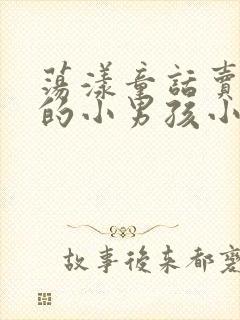 蕩漾童話賣
的小男孩小
故事後來都